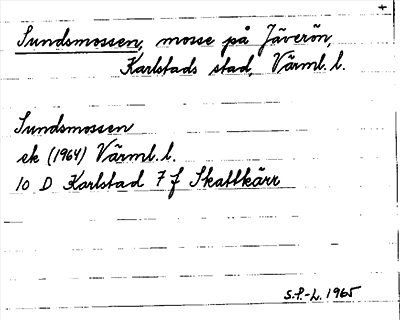 +
Sundsmossen, mosse på Jäverön,
Karlstads stad, Värml. l.
Sundsmossen
ek (1964) Värml. l.
10 D Karlstad 7 f Skattkärr
S.P.-L. 1965